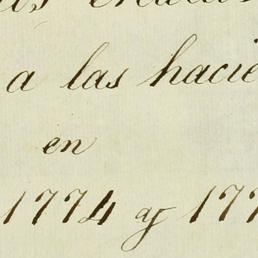 a las hacie
en
1774 y 177